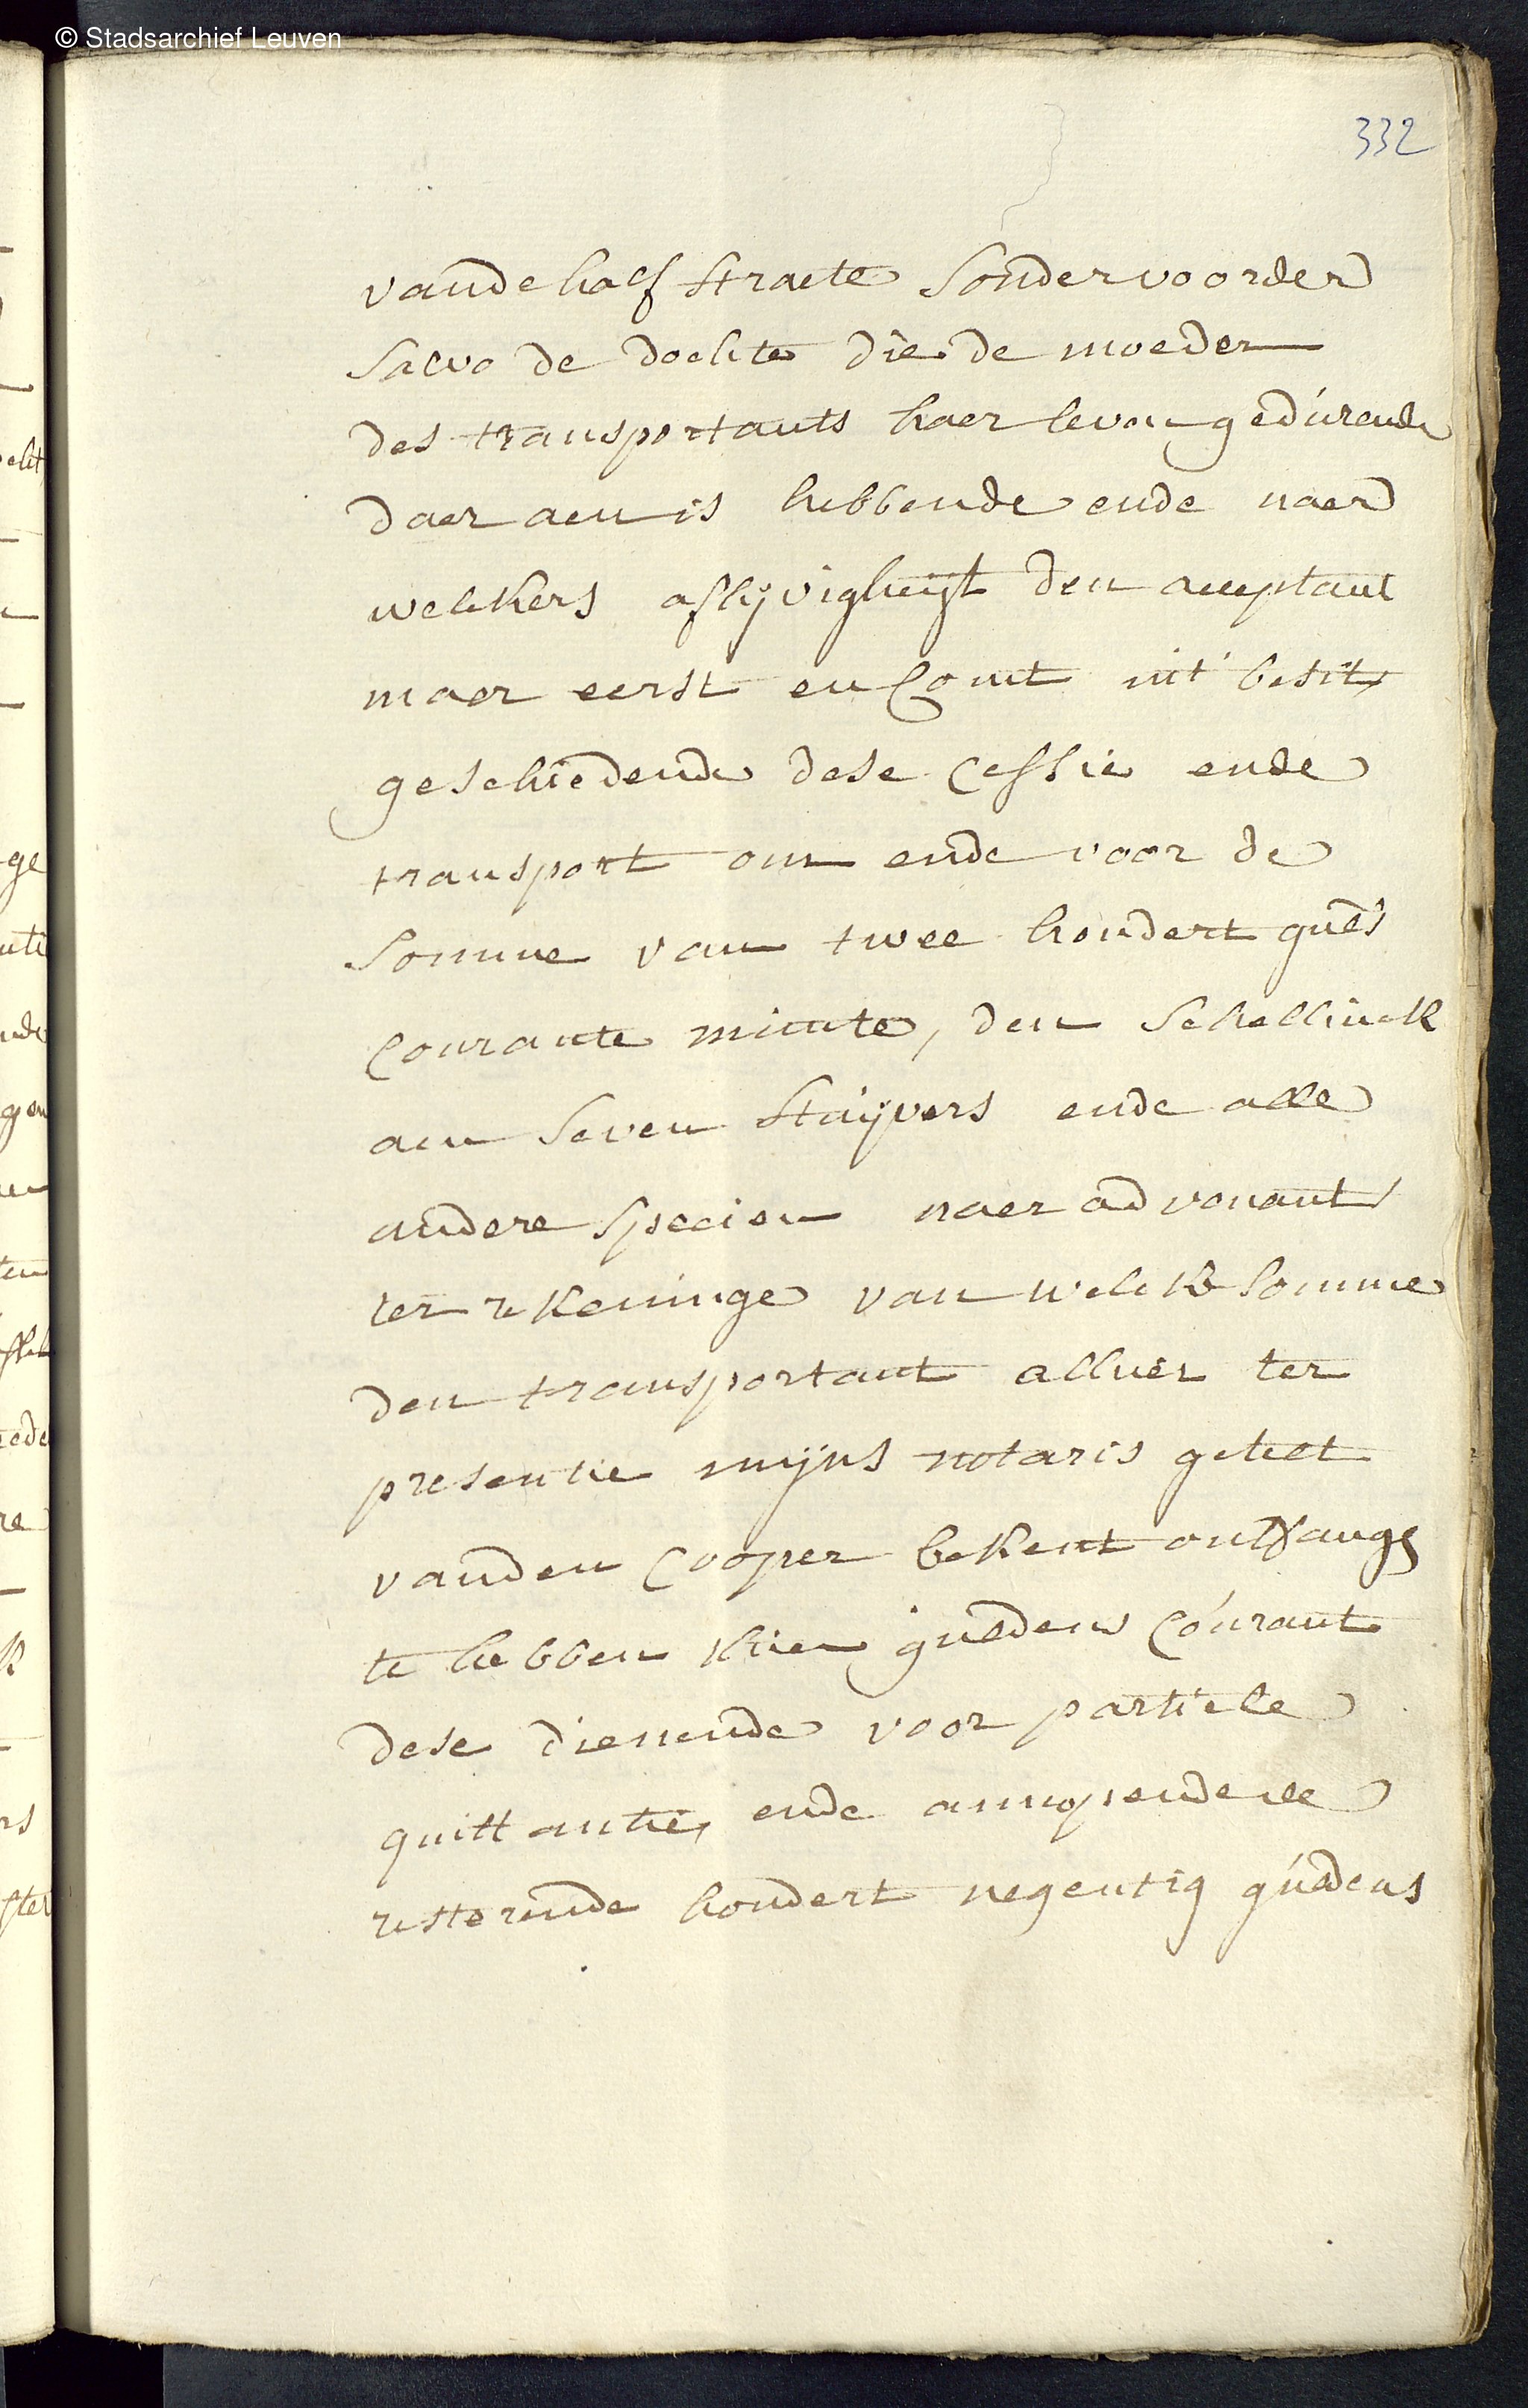 © Stadsarchief Leuven
332
vande half straete sonder voorder
salvo de tochte die de moeder
des transportants haer leven gedúrende
daer aen is hebbende ende naer
welckers aflijvigheijt den acceptant
maer eerst en comt int besit
geschiedende dese cessie ende
transport om ende voor de
somme van twee hondert guls
courante minte, den schellinck
aen seven stuijvers ende alle
andere specien naer advenant
ter rekeninge van welcke somme
den transportant alhier ter
presentie mijns notaris getelt
vanden cooper bekent ontfangen
te hebben thien guldens coúrant
dese dienende voor partiele
quittantie, ende aengaende de
resterende hondert negentig gúldens